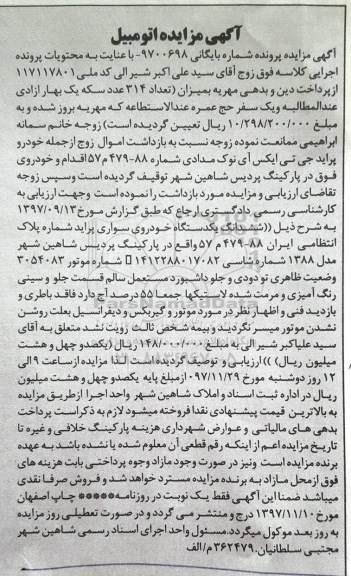 آگهی مزایده اتومبیل
آگهی مزایده پرونده شماره بایگانی ۹۷۰۰۶۹۸- با عنایت به محتویات پرونده
اجرایی کلاسه فوق زوج آقای سید علی اکبر شیر الی کد ملی ۱۱۷۱۱۷۸۰۱
از پرداخت دین و بدهی مهریه بمیزان (تعداد ۳۱۴ عدد سکه یک بهار ازادی
عندالمطالبه ویک سفر حج عمره عندالاستطاعه که مهریه بروز شده و به
مبلغ ۱۰/۲۹۸/۲۰۰/۰۰۰ ریال تعیین گردیده است) زوجه خانم سمانه
ابراهیمی ممانعت نموده زوجه نسبت به بازداشت اموال زوج ازجمله خودرو
پراید جی تی ایکس آی نوک مدادی شماره ۸۸-۴۷۹ م ۵۷ اقدام و خودروی
فوق در پارکینگ پردیس شاهین شهر توقیف گردیده است وسپس زوجه
تقاضای ارزیابی و مزایده مورد بازداشت را نموده است وجهت ارزیابی به
کارشناسی رسمی دادگستری ارجاع که طبق گزارش مورخ ۱۳۹۷/۰۹/۱۳
به شرح ذیل ((ششدانگ یکدستگاه خودروی سواری پراید شماره پلاک
انتظامی ایران ۸۸-۴۷۹ م ۵۷ واقع در پارکینگ پردیس شاهین شهر
مدل ۱۳۸۸ شماره شاسی ۱۴۱۲۲۸۸۰۱۷۰۸۲ شماره موتور ۳۰۵۴۰۸۳
وضعیت ظاهری تو دودی و جلو داشبورد مستعمل سالم قسمت جلو و سینی
رنگ آمیزی و مرمت شده لاستیکها جمعا ۵۵ درصد آج دارد فاقد باطری و
بازدید فنی و اظهار نظر در مورد موتور و گیربکس و دیفرانسیل بعلت روشن
نشدن موتور میسر نگردید و بیمه شخص ثالث رویت نشد متعلق به آقای
سید علیاکبر شیر الی به مبلغ ۱۴۸/۰۰۰/۰۰۰ ریال (یکصدو چهل و هشت
میلیون ریال) )) ارزیابی و توقیف گردیده است لذا مزایده ازساعت ۹ الی
۱۲ روز دوشنبه مورخ ۰۹۷/۱۱/۲۹ ازمبلغ پایه یکصدو چهل و هشت میلیون
ریال در اداره ثبت اسناد و املاک شاهین شهر واحد اجرا ازطریق مزایده
به بالاترین قیمت پیشنهادی نقدا فروخته میشود لازم به ذکراست پرداخت
بدهی های مالیاتی و عوارض شهرداری هزینه پارکینگ خلافی و غیره تا
تاریخ مزایده اعم از اینکه رقم قطعی آن معلوم شده یا نشده باشد به عهده
برنده مزایده است ونیز در صورت وجود مازاد وجوه پرداختی بابت هزینه های
فوق ازمحل مازاد به برنده مزایده مسترد خواهد شد و فروش صرفا نقدی
میباشد ضمنا این آگهی فقط یک نوبت در روزنامه***** چاپ اصفهان
مورخ ۱۳۹۷/۱۱/۱۰ درج و منتشر می گردد و در صورت تعطیلی روز مزایده
به روز بعد موکول میگردد.مسئول واحد اجرای اسناد رسمی شاهین شهر
مجتبی سلطانیان. ۳۶۲۴۷۹ م/الف